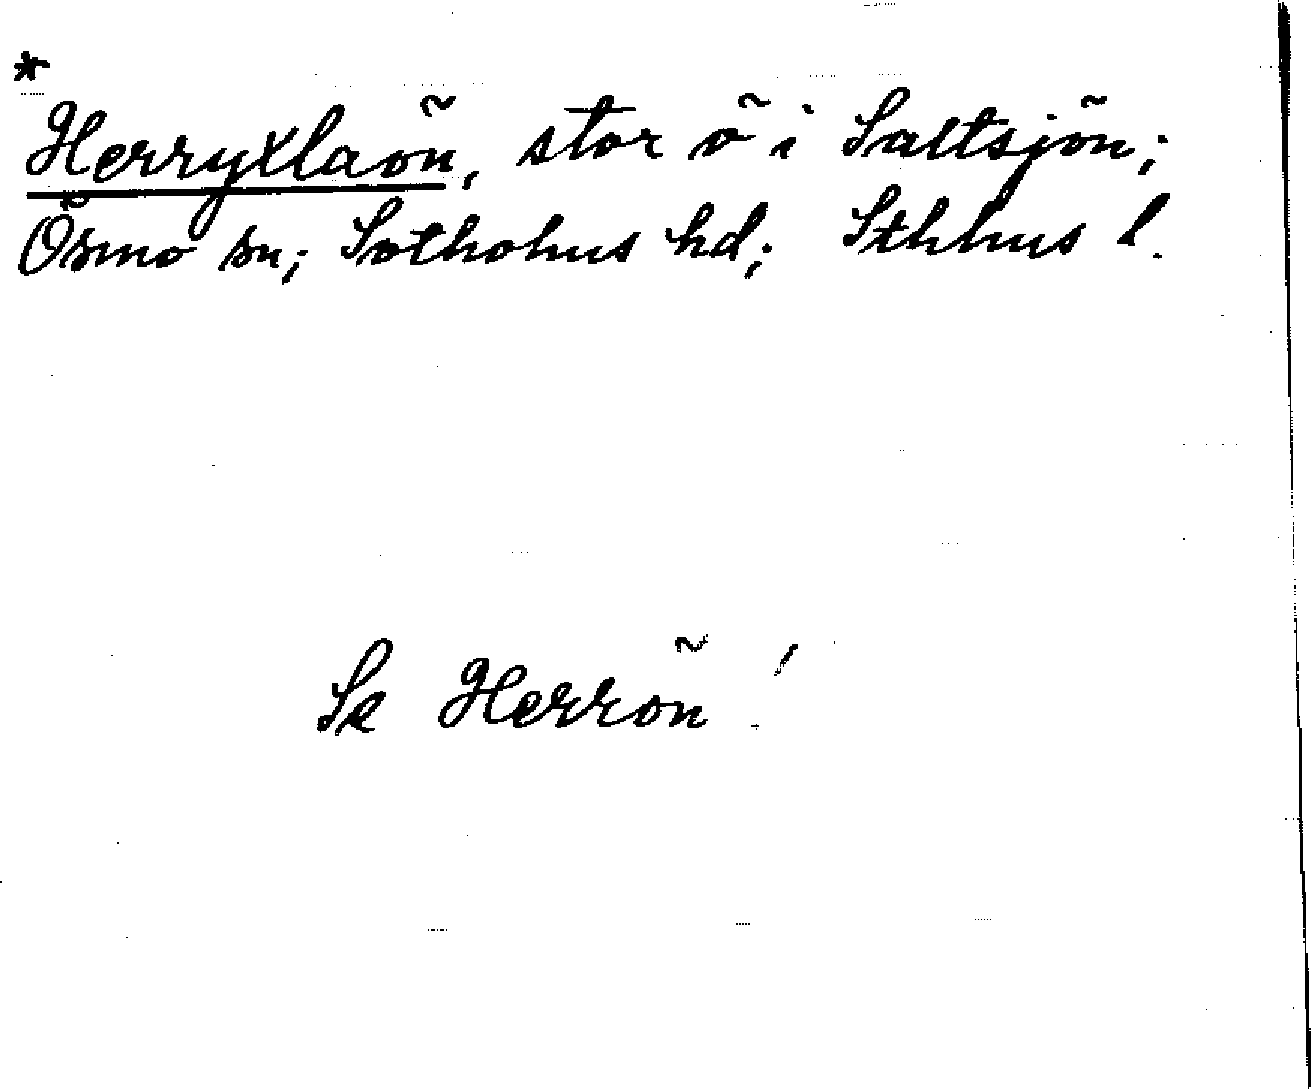 *
Herryxlaön, stor ö i Saltsjön;
Ösmo sn; Sotholms hd; Sthlms l.
Se Herrön!